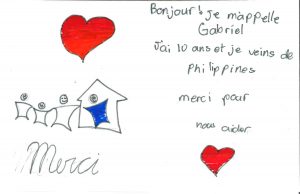 Bonjour! je m'appelle
Gabriel
J'ai 10 ans et je veins de
Philippines
merci pour
nous aider
Merci